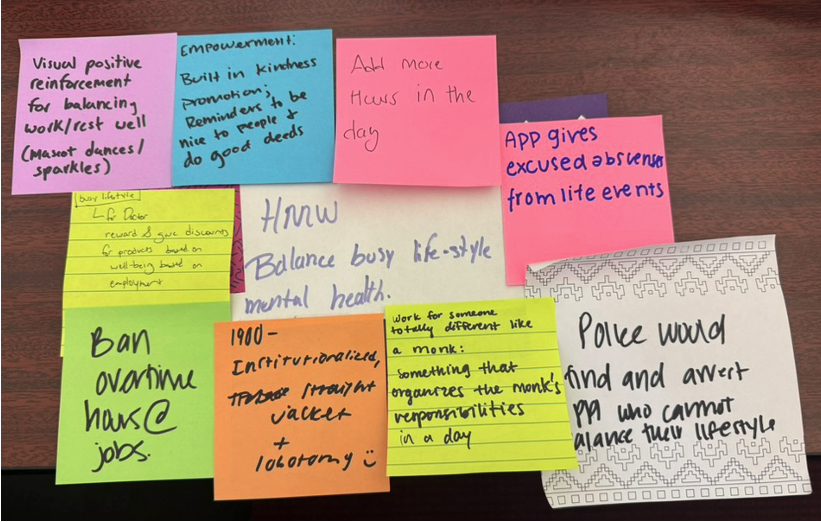 Visual positive
reinforcement
for balancing
work/rest well
(Mascot dances/
sparkles)
EMPOWERMENT:
Built in kindness
promotion;
Reminders to be
nice to people &
do good deeds
Add more
Hours in the
day
APP gives
excused abscenses
from life events
busy lifestyle
for Doctor
reward & give discounts
for products based on
well-being based on
employment
HMW
Balance busy life-style
mental health.
Ban
overtime
hours@
jobs.
1900-
Institutionalized,
straight
jacket
+
lobotomy
work for someone
totally different like
a monk:
something that
organizes the monk's
responsibilities
in a day
Police would
find and arrest
ppl who cannot
balance their lifestyle